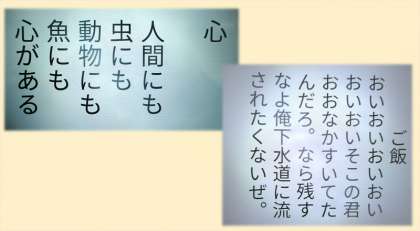 心
人間にも
虫にも
動物にも
魚にも
心がある
ご飯
おいおいおいおい
おいおいそこの君
おおなかすいてた
んだろ。なら残す
なよ俺下水道に流
されたくないぜ。